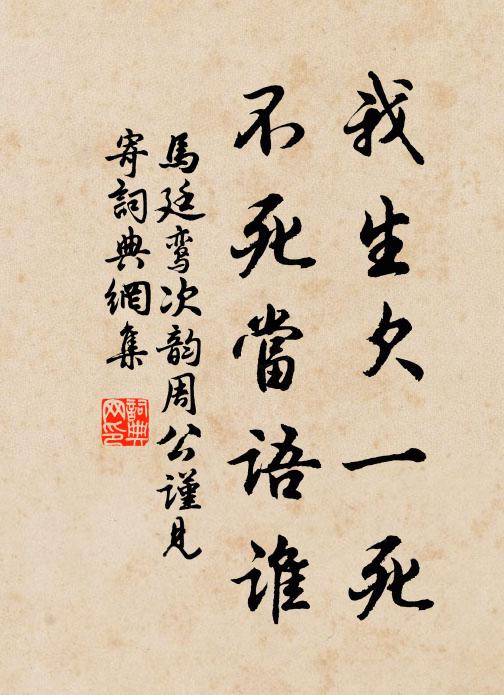 我生欠一死
不死當語誰
馬廷鸾次韵周公謹見
寄詞典網集
詞典
网印